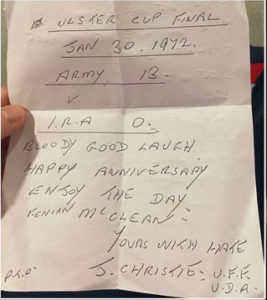 ULSTER CUP FINAL
JAN 30. 1972.
ARMY 13.
V
I.R.A 0.
BLOODY GOOD LAUGH.
HAPPY ANNIVERSARY
ENJOY THE DAY.
FENIAN McCLEAN.
YOURS WITH HATE
P.T.O. J. CHRISTIE. U.F.F.
U.D.A.